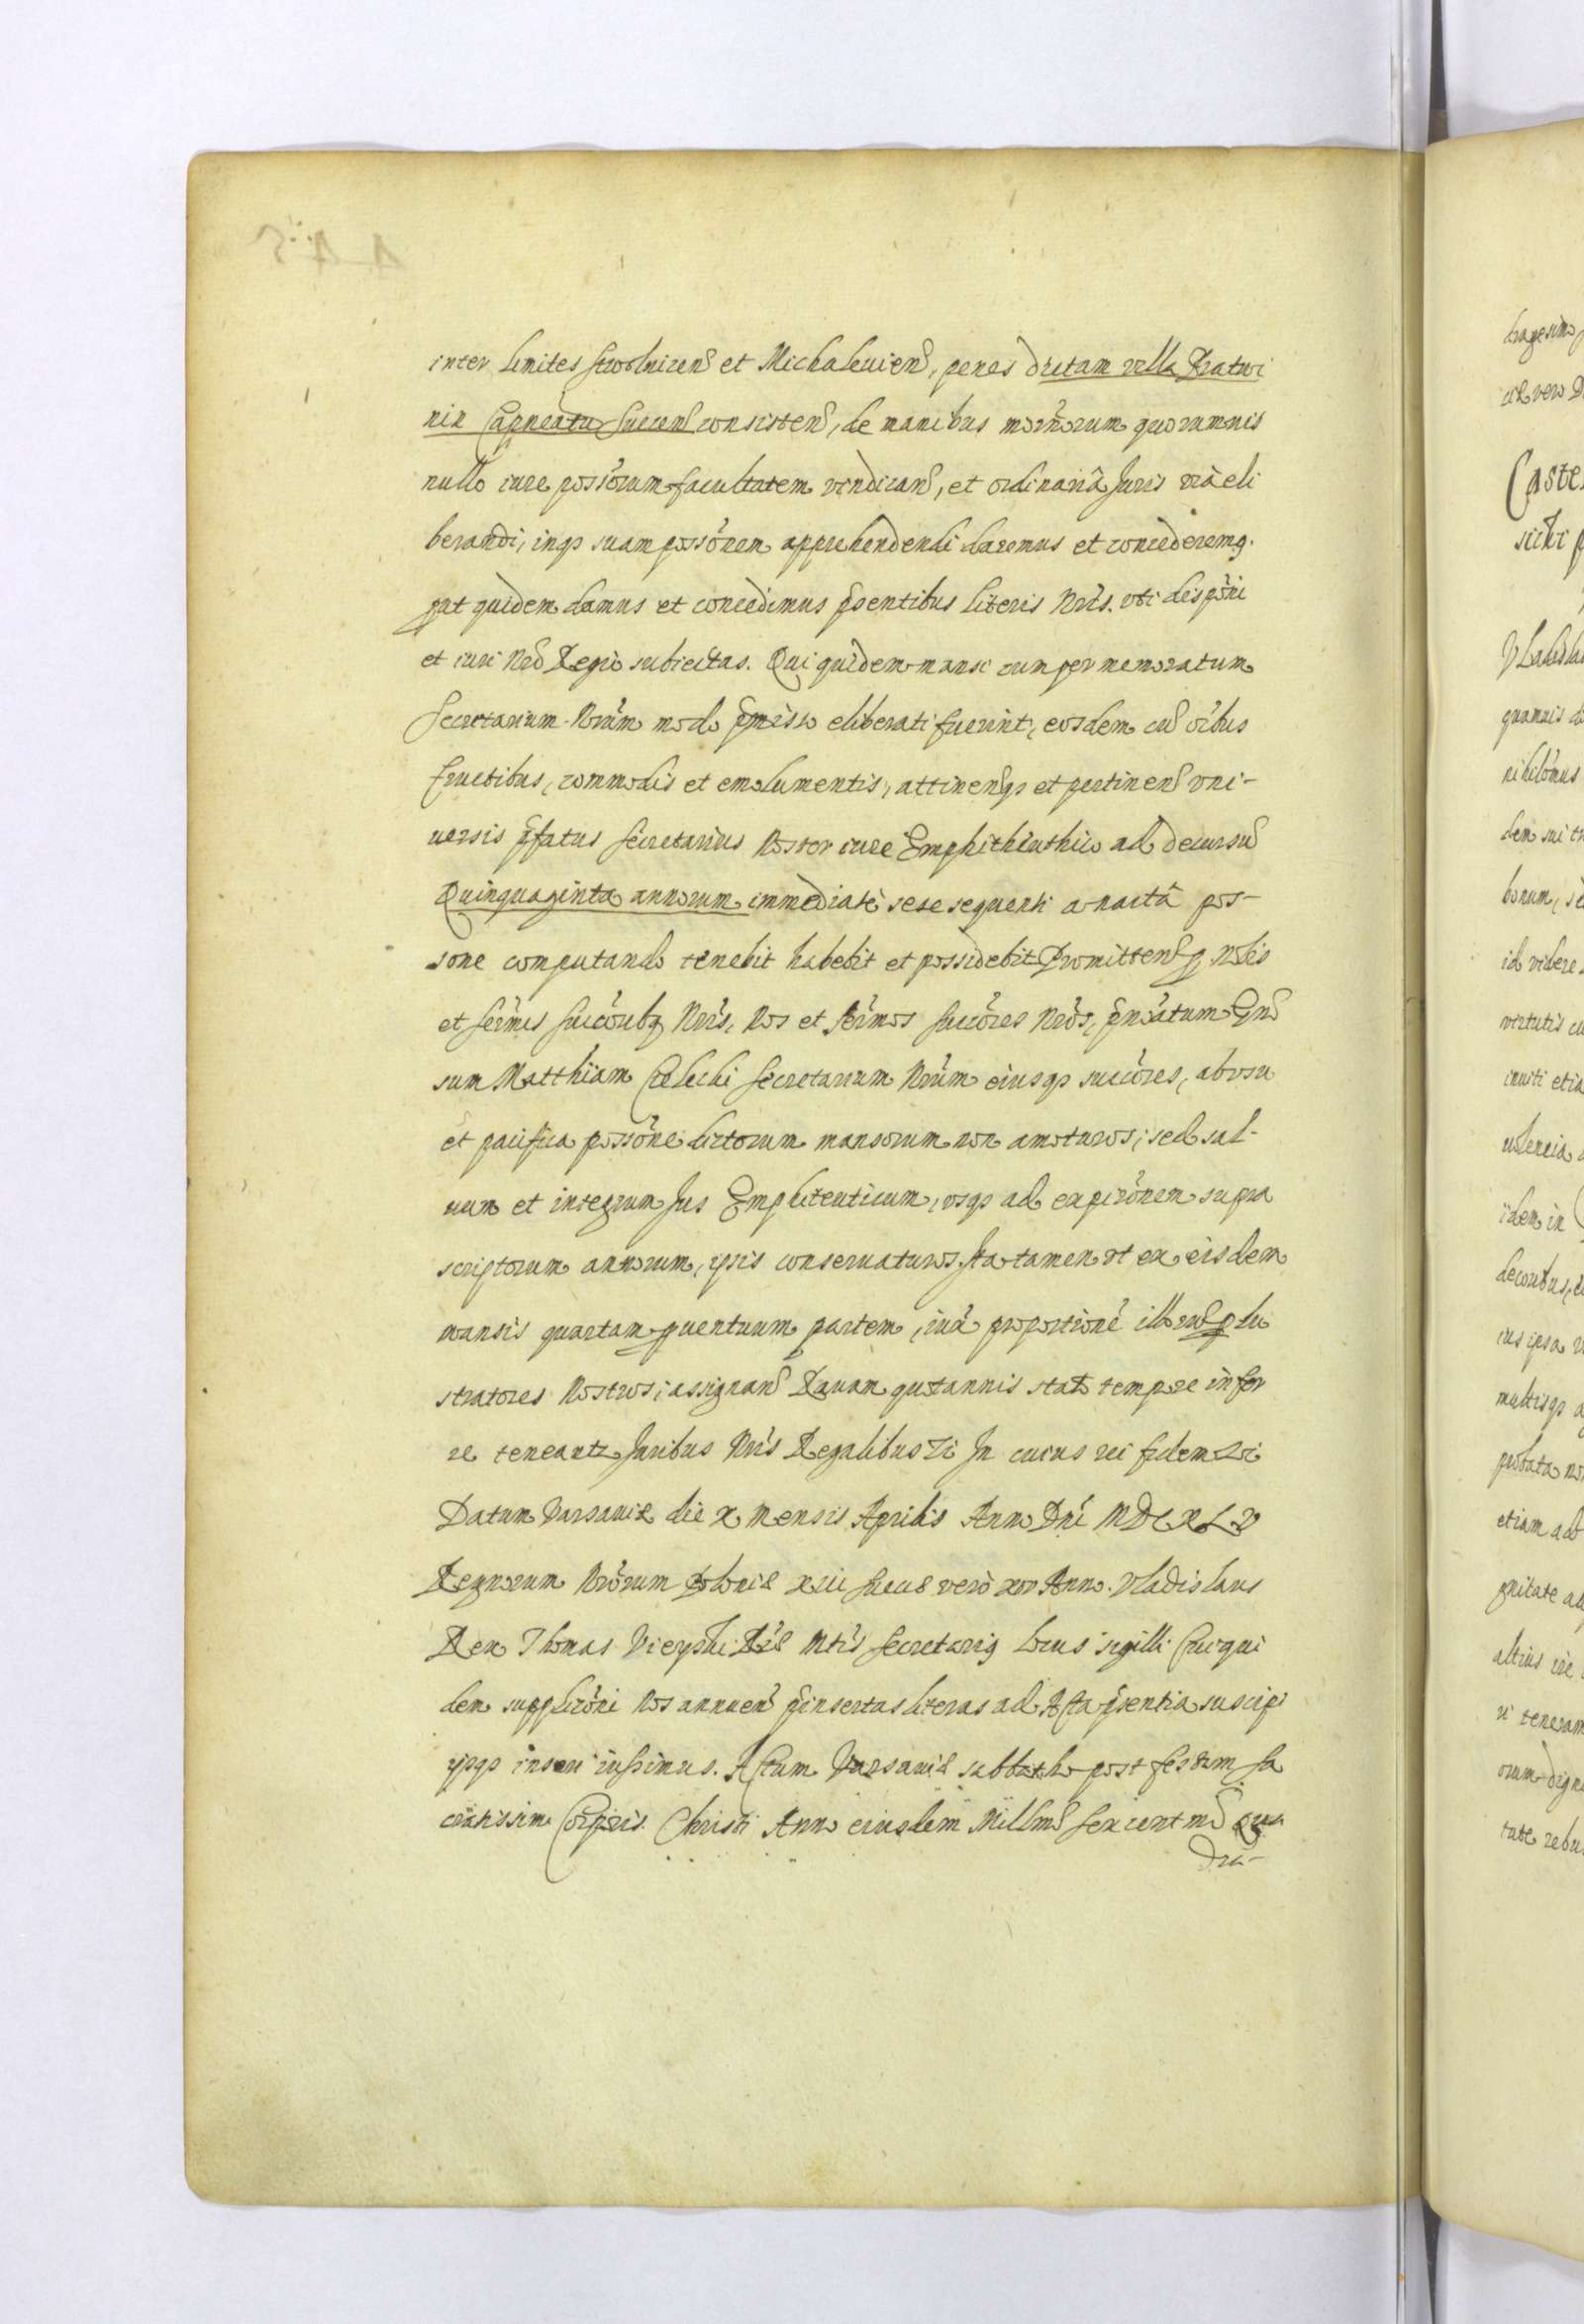 inter limites et Michaleuien, penes dictam villa Bratwi
nin consisten, de manibus quorumuis
nullo iure possorum facultatem vendican, et ordinaria Juris via eli
berandi, inqȝ suam possonem apprehendendi daremus et concederemq.
put quidem damus et concedimus pñsentibus literis Nris. vti disponi
et iuri Nro Regio subiectas. Qui quidem mansi cum per memoratum
Secretarium Nrum modo pmisso eliberati fuerint, eosdem cu oibus
fructibus, commodis et emolumentis, attinenqȝ et pertinen vni-
uersis pfatus Secretarius Noster iure Emphitheuthico ad decursu
Quinquaginta annorum immediatè sese sequenti a nacta pos-
sone computando tenebit habebit et possidebit Promittenq nobis
et Sermis Succoribq Nris, Nos et Sermos Succores Nros, pnoatum Gno
sum Matthiam Secretarium Nrum eiusqȝ succores, ab vsu
et pacifica possone dictorum mansorum non amoturos; sed sal-
uum et integrum Jus Emphiteuticum, vsqȝ ad expironem supra
scriptorum annorum, ipsis conseruaturos. Ita tamen vt ex eisdem
mansis quartam puentuum partem, iuxa proportione illoru p lu
stratores Nostros, assignan Rauam quotannis stato tempore infer
re teneantr Juribus Nris Regalibus In cuius rei fidem
Datum Varsauiæ die X Mensis Aprilis Anno Dni MDCXLV
Regnorum Nrorum Poloniæ XIII Sueciæ verò XIV Anno. Vladislaus
Rex Thomas Vieyski Rgiæ Mtis Secretariq Locus sigilli Cui qui
dem supplicõni Nos annuen pinsertas literas ad Acta pñsentia suscipi
ysqȝ inseri iussimus. Actum Varsauiæ sabbatho post festum Sa
cratissimi Corporis Christi Anno eiusdem Millmo Sexcentmo Qua
dra-